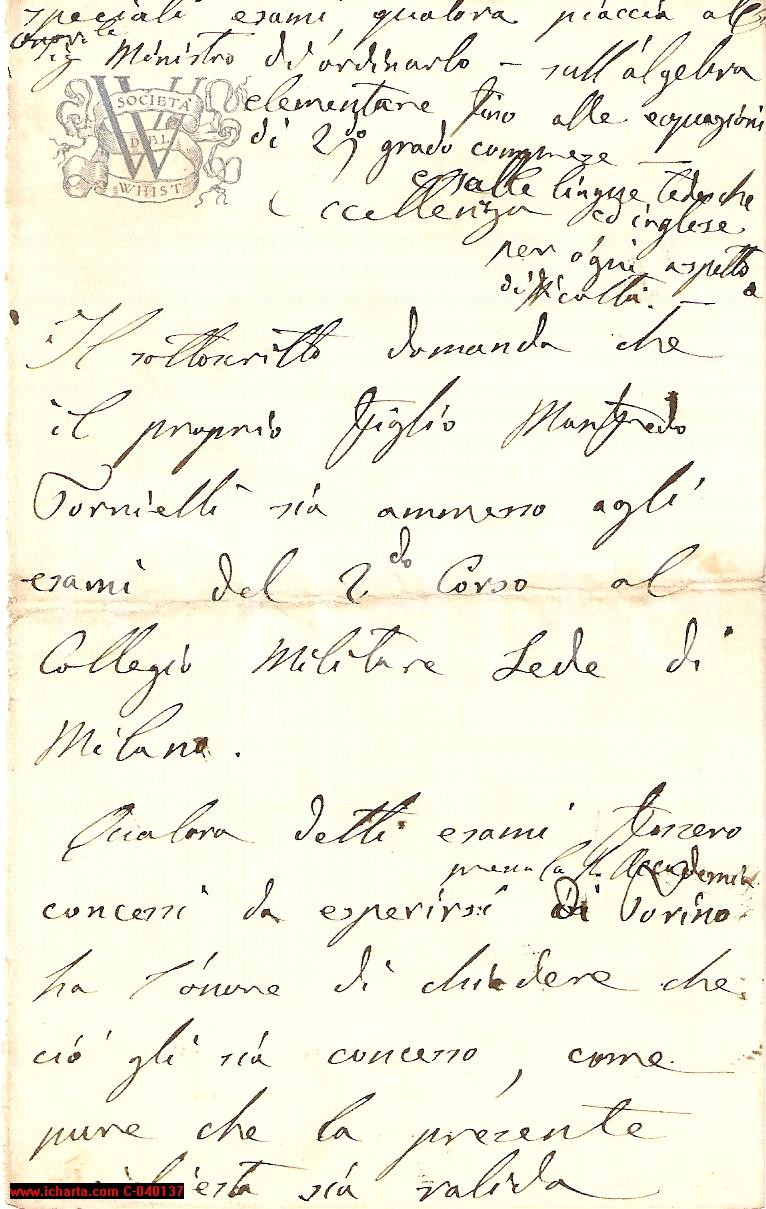 speciali esami, qualora piaccia all
Onor.li
Sig Ministro di ordinarlo – sull'algebra
SOCIETA'
DEL
WHIST
elementare fino alle equazioni
di 2do grado comprese —
e sulle lingue tedesche
Eccellenza
ed inglese
per ogni aspetto
di
Il sottoscritto domanda che
il proprio figlio Manfredo
Tornielli sia ammesso agli
esami del 2do Corso al
Collegio Militare Sede di
Milano.
Qualora detti esami fossero
presso la R. Accademia
concessi da esperirsi di Torino
ha l'onore di chiedere che
ciò gli sia concesso, come
pure che la presente
sia valida
www.icharta.com C-040137